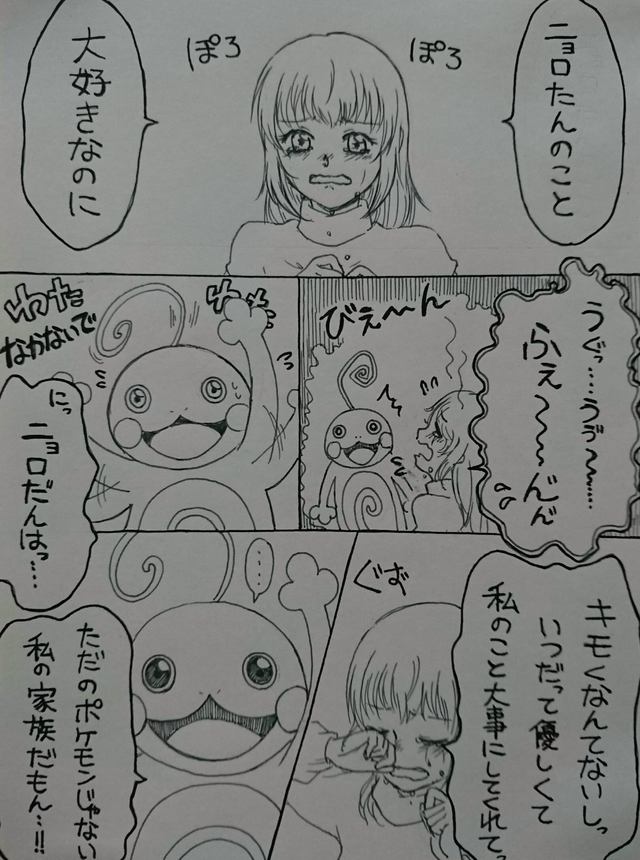 ニョロたんのこと
ぽろ
ぽろ
大好きなのに
うぐっ…うゔ〜〜……
ふぇ〜〜〜んん
びぇ〜〜ん
わた
わた
なかないで
にっ
ニョロだんはっ…
キモくなんてないしっ
いつだって優しくて
私のこと大事にしてくれてっ
ぐず
…
ただのポケモンじゃない
私の家族だもん…!!